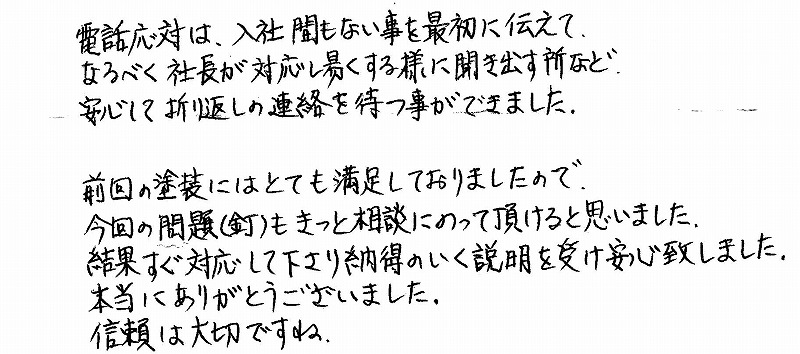 電話応対は、入社間もない事を最初に伝えて、
なるべく社長が対応し易くする様に聞き出す所など、
安心して折り返しの連絡を待つ事ができました。
前回の塗装にはとても満足しておりましたので、
今回の問題(釘)もきっと相談にのって頂けると思いました。
結果すぐ対応して下さり納得のいく説明を受け安心致しました。
本当にありがとうございました。
信頼は大切ですね。